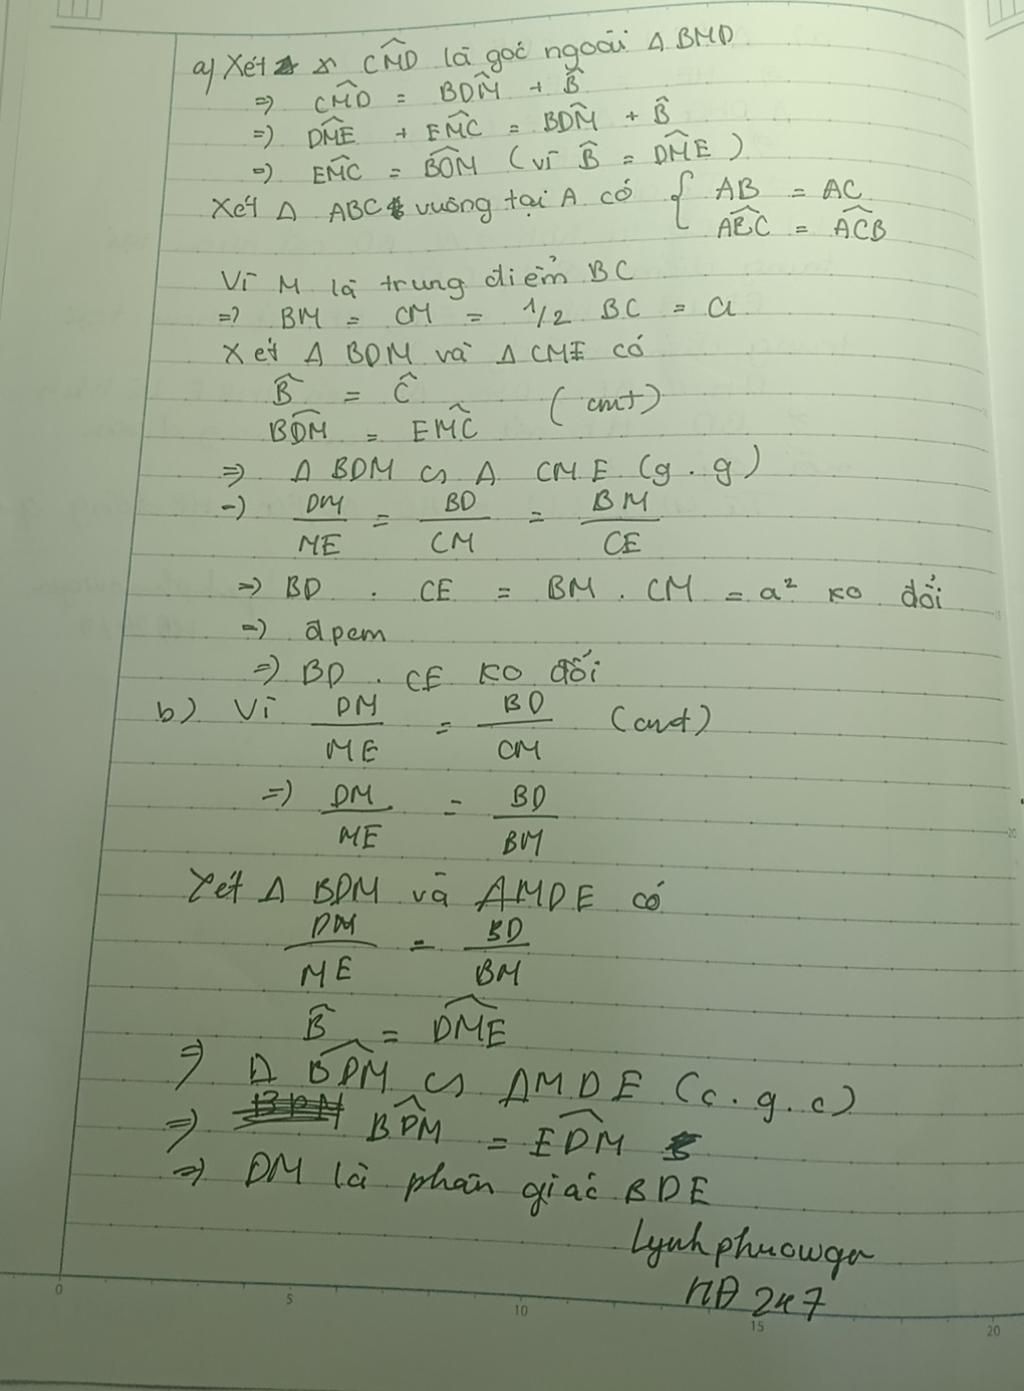 a) Xét CM̂D là góc ngoài Δ BMD
=> CM̂D = BD̂M + B̂
=> DM̂E + EM̂C = BD̂M + B̂
=> EM̂C = BD̂M (vì B̂ = DM̂E)
Xét Δ ABC vuông tại A có { AB = AC
AB̂C = AĈB
Vì M là trung điểm BC
=> BM = CM = 1/2 BC = a
Xét Δ BDM và Δ CME có
B̂ = Ĉ
BD̂M = EM̂C (cmt)
=> Δ BDM ∽ Δ CME (g.g)
=> DM/ME = BD/CM = BM/CE
=> BD . CE = BM . CM = a² ko đổi
=> đpcm
=> BD . CE ko đổi
b) Vì DM/ME = BD/CM (cmt)
=> DM/ME = BD/BM
Xét Δ BDM và ΔMDE có
DM/ME = BD/BM
B̂ = DM̂E
=> Δ BD̂M ∽ ΔMDE (c.g.c)
=> BD̂M = ED̂M
=> DM là phân giác BDE
Lynhphuowga
HĐ 247
0 5 10 15 20